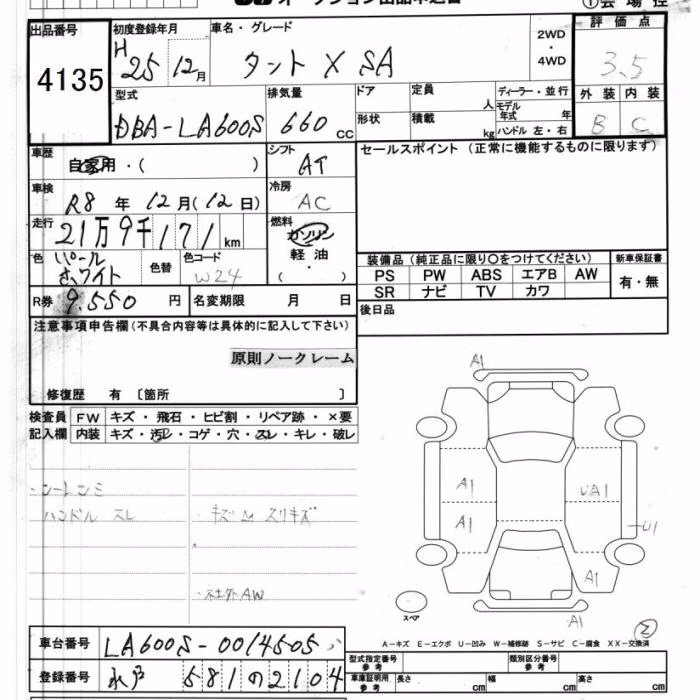 オークション出品申込書
①会場控
出品番号
4135
初度登録年月
H 25年 12月
車名・グレード
タント X SA
2WD
・
4WD
評価点
3.5
外装 内装
B C
型式
DBA-LA600S
排気量
660 cc
ドア
形状
定員 人
積載 kg
ディーラー・並行
モデル年式 年
ハンドル 左・右
車歴
自家用・( )
シフト
AT
セールスポイント(正常に機能するものに限ります)
車検
R8 年 12月(12日)
冷房
AC
走行
21万9千171 km
燃料
ガソリン
軽油
色
パール
ホワイト
色替
色コード
W24
装備品(純正品に限り○をつけてください)
新車保証書
PS PW ABS エアB AW
有・無
SR ナビ TV カワ
R券 9.550 円
名変期限 月 日
後日品
注意事項申告欄(不具合内容等は具体的に記入して下さい)
原則ノークレーム
修復歴 有 〔箇所 〕
検査員
記入欄
FW キズ・飛石・ヒビ割・リペア跡・×要
内装 キズ・汚レ・コゲ・穴・スレ・キレ・破レ
・シートシミ
ハンドル スレ
・キズ凹スリキズ
・社外AW
A1
A1
UA1
A1
U1
A1
A1
スペア
A-キズ E-エクボ U-凹み W-補修跡 S-サビ C-腐食 XX-交換済
車台番号
LA600S-0014505
登録番号
水戸 581 の 2104
型式指定番号
参考
類別区分番号
参考
車庫証明用
参考
長さ cm 幅 cm 高さ cm